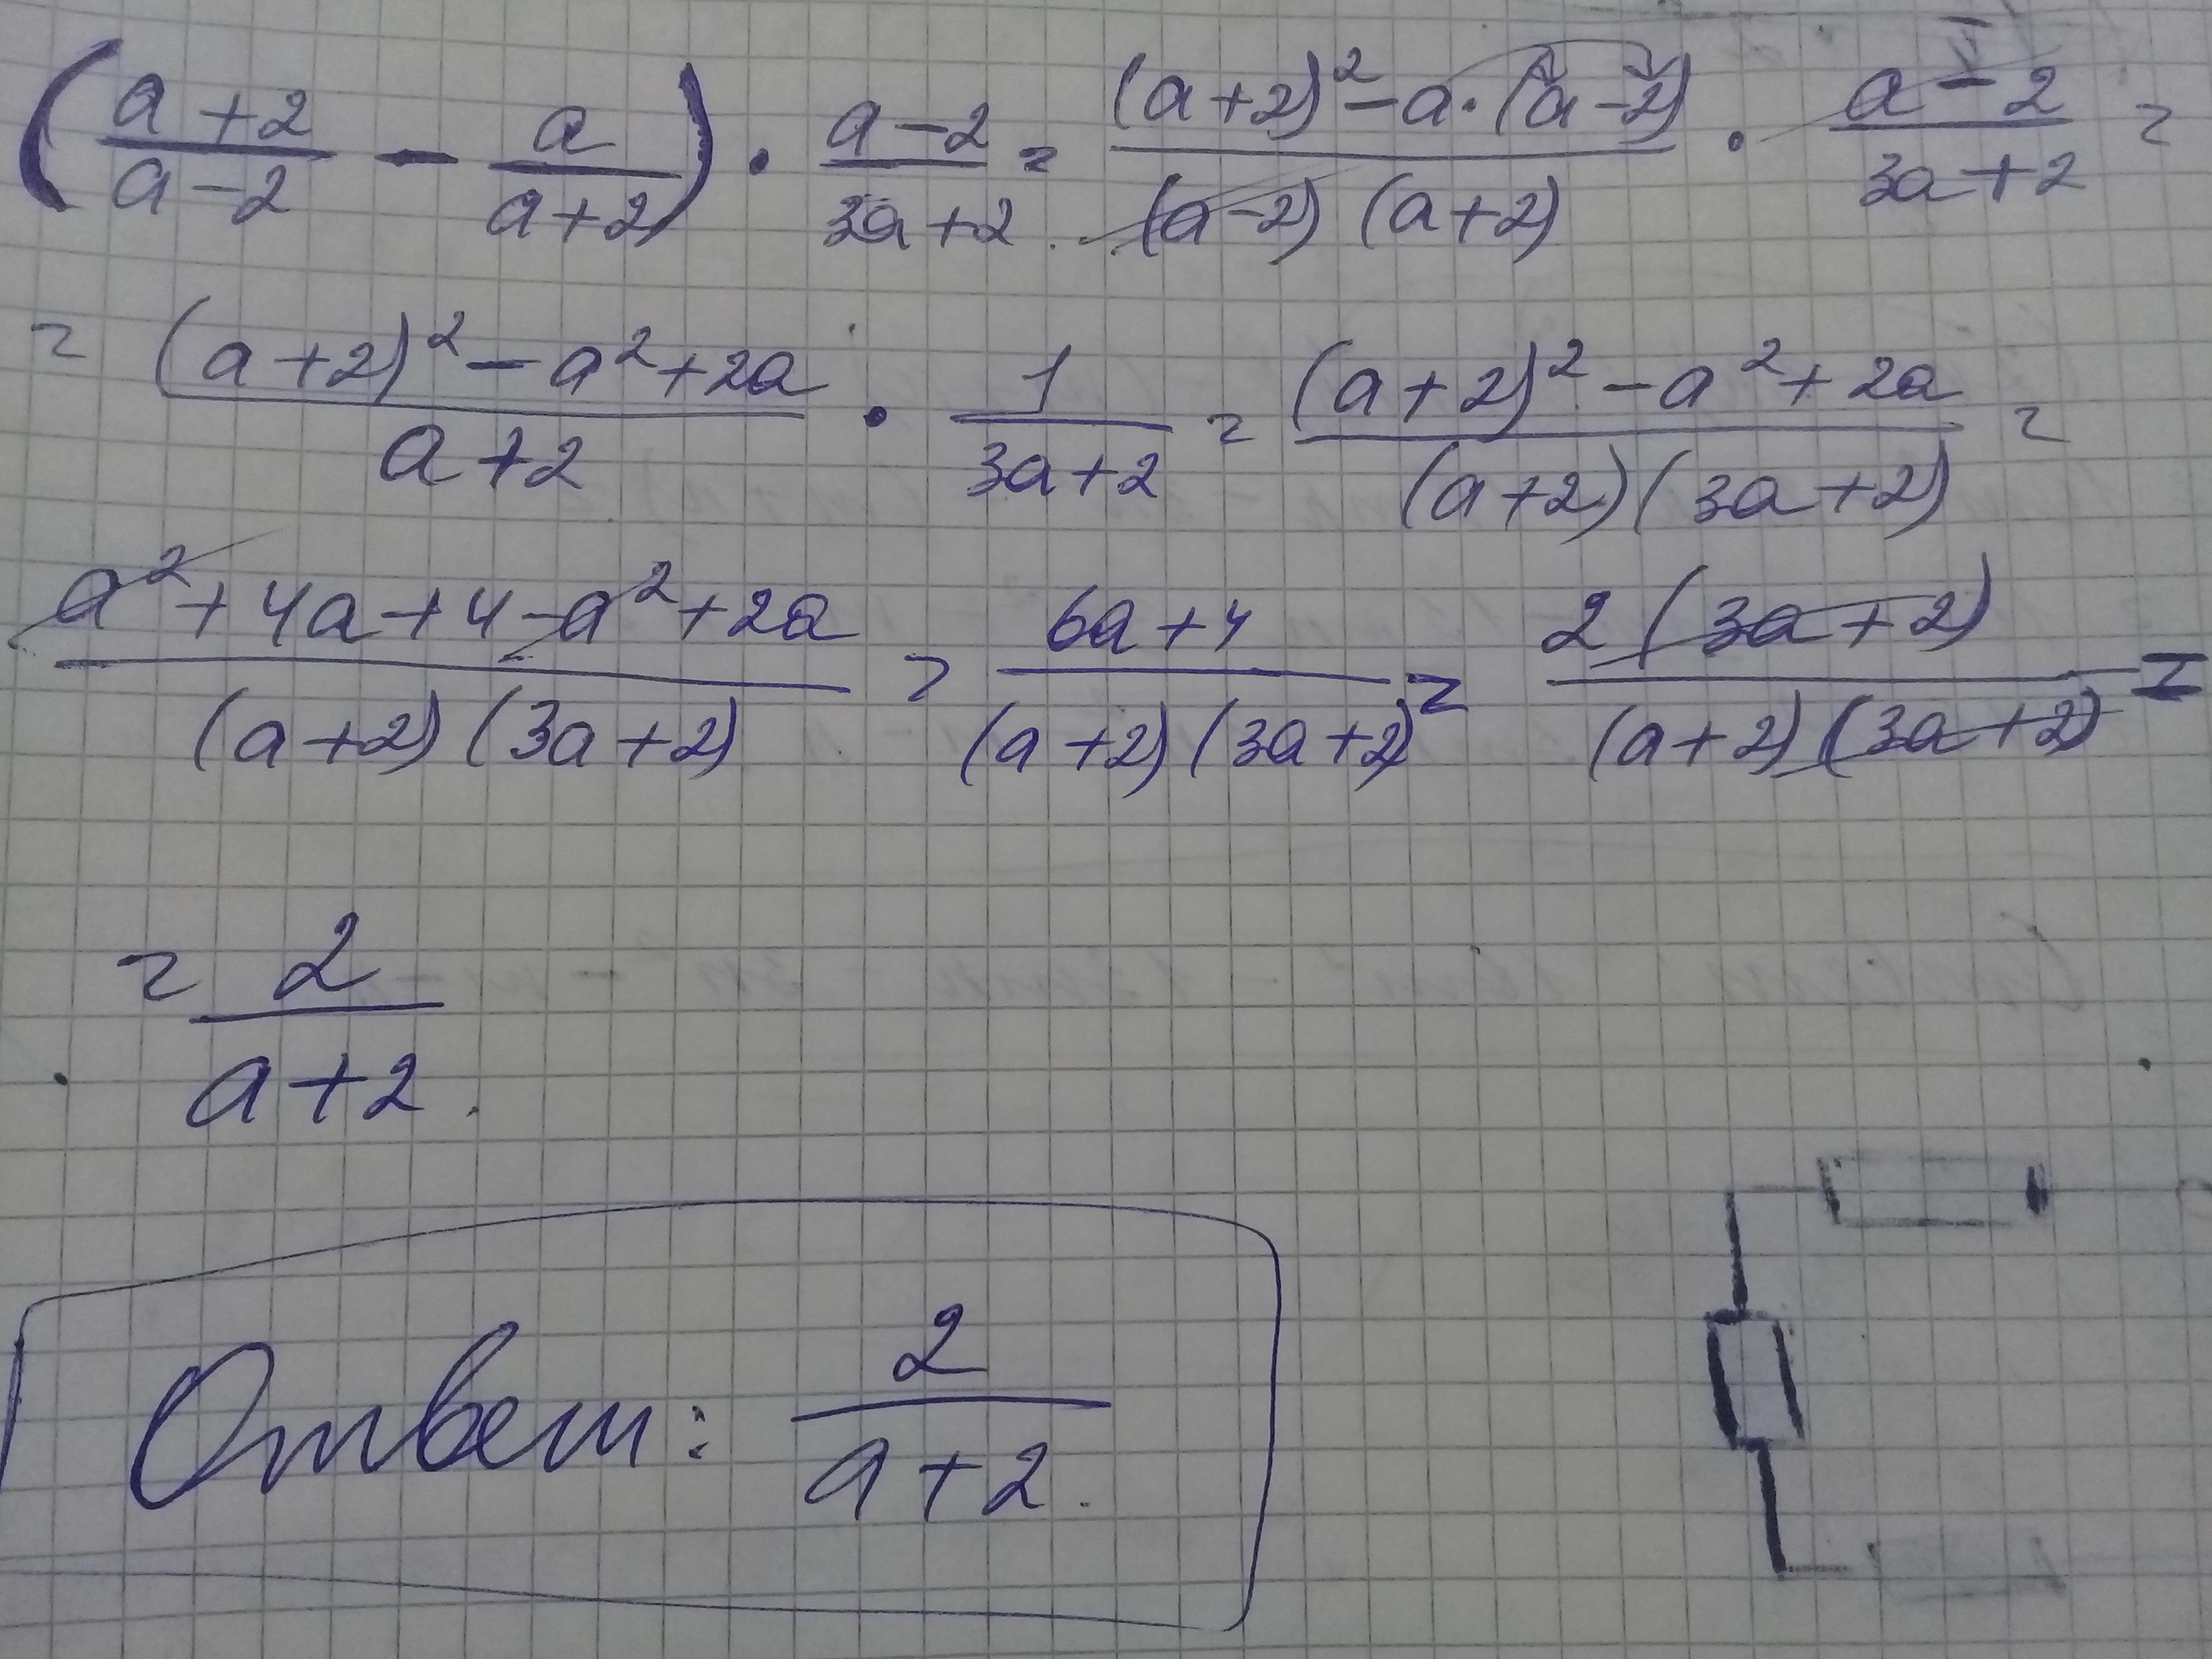 (a+2/a-2 - a/a+2) · a-2/3a+2 = (a+2)²-a·(a-2)/(a-2)(a+2) · a-2/3a+2 =
= (a+2)²-a²+2a/a+2 · 1/3a+2 = (a+2)²-a²+2a/(a+2)(3a+2) =
a²+4a+4-a²+2a/(a+2)(3a+2) = 6a+4/(a+2)(3a+2) = 2(3a+2)/(a+2)(3a+2) =
= 2/a+2.
Ответ: 2/a+2.